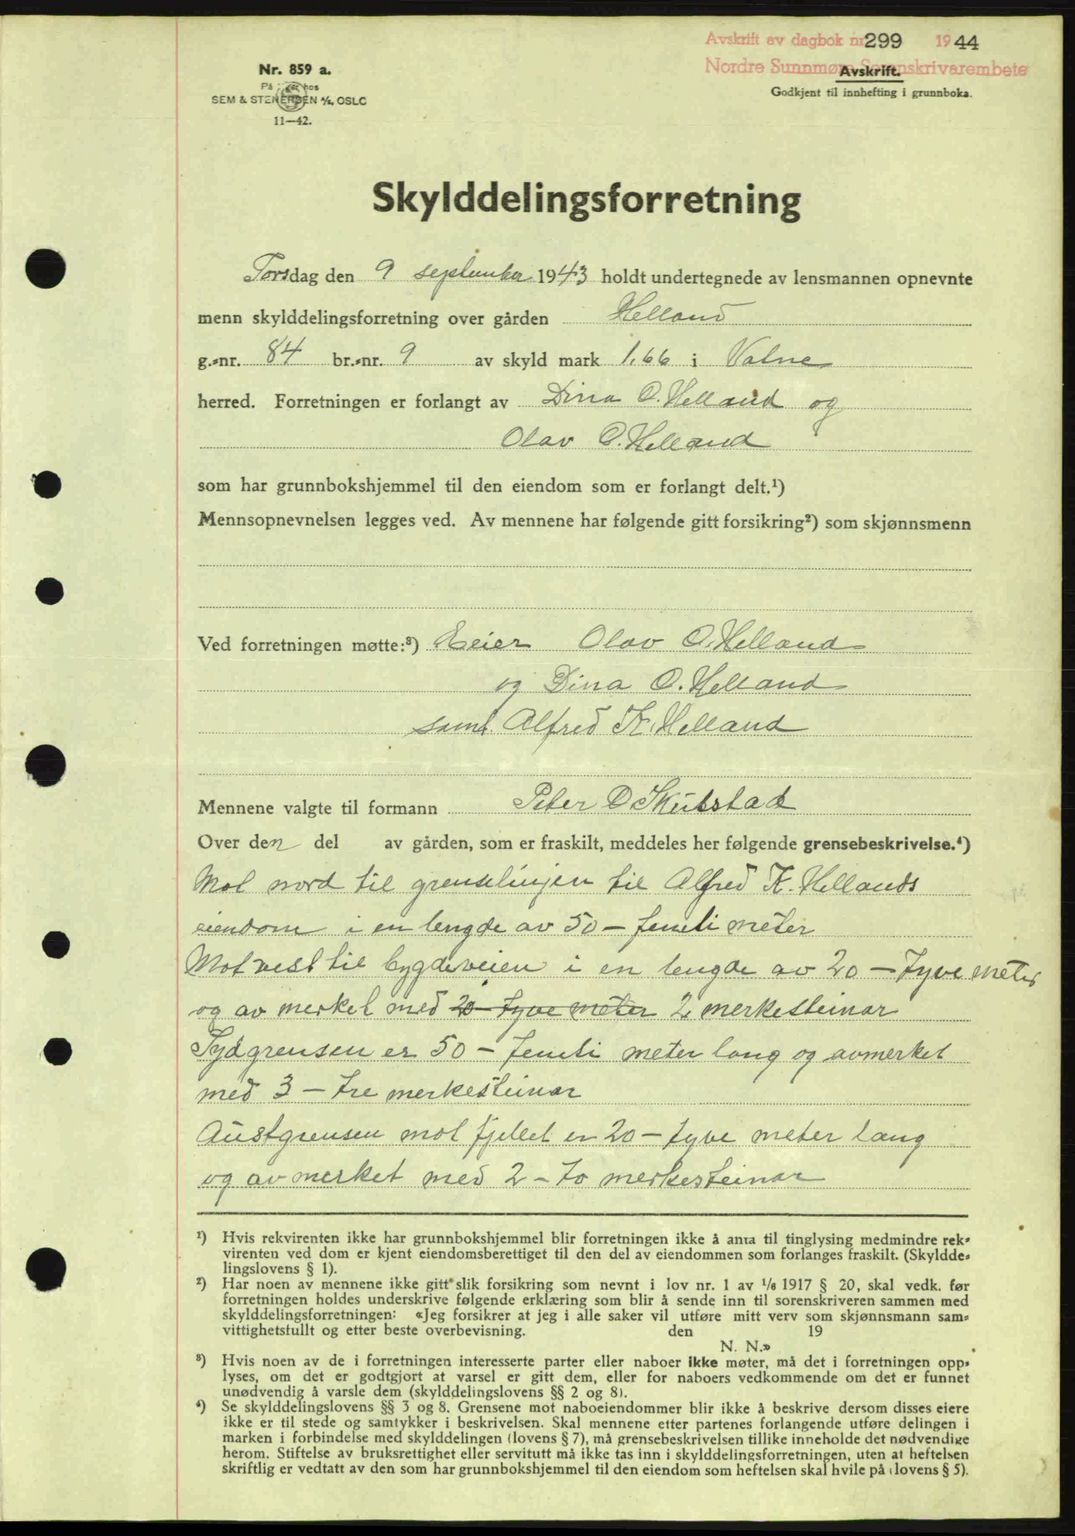 Avskrift av dagbok nr 299 1944
Nordre Sunnmøre Sorenskrivarembete
Nr. 859 a.
Avskrift.
Godkjent til innhefting i grunnboka.
SEM & STENERSEN A/S, OSLO
11—42.
Skylddelingsforretning
Torsdag den 9 september 1943 holdt undertegnede av lensmannen opnevnte
menn skylddelingsforretning over gården Helland
g.-nr. 84 br.-nr. 9 av skyld mark 1.66 i Vatne
herred. Forretningen er forlangt av Dina O. Helland og
Olav O. Helland
som har grunnbokshjemmel til den eiendom som er forlangt delt.¹)
Mennsopnevnelsen legges ved. Av mennene har følgende gitt forsikring²) som skjønnsmenn
Ved forretningen møtte:³) Eeier Olav O. Helland
og Dina O. Helland
samt Alfred K. Helland
Mennene valgte til formann Peter O Skulstad
Over den del av gården, som er fraskilt, meddeles her følgende grensebeskrivelse.⁴)
Mot nord til grenselinjen til Alfred K. Hellands
eiendom i en lengde av 50 — femti meter
Mot vest til bygdeveien i en lengde av 20 — tyve meter
og av merket med 20 - tyve meter 2 merkesteinar
Sydgrensen er 50 — femti meter lang og avmerket
med 3 — tre merkesteinar
Austgrensen mot fjellet er 20 — tyve meter lang
og av merket med 2 — to merkesteinar
¹) Hvis rekvirenten ikke har grunnbokshjemmel blir forretningen ikke å anta til tinglysing medmindre rek-
virenten ved dom er kjent eiendomsberettiget til den del av eiendommen som forlanges fraskilt. (Skyldde-
lingslovens § 1).
²) Har noen av mennene ikke gitt slik forsikring som nevnt i lov nr. 1 av 1/6 1917 § 20, skal vedk. før
forretningen holdes underskrive følgende erklæring som blir å sende inn til sorenskriveren sammen med
skylddelingsforretningen: «Jeg forsikrer at jeg i alle saker vil utføre mitt verv som skjønnsmann sam-
vittighetsfullt og etter beste overbevisning. den 19
N. N.»
³) Hvis noen av de i forretningen interesserte parter eller naboer ikke møter, må det i forretningen opp-
lyses, om det er godtgjort at varsel er gitt dem, eller for naboers vedkommende om det er funnet
unødvendig å varsle dem (skylddelingslovens §§ 2 og 8).
⁴) Se skylddelingslovens §§ 3 og 8. Grensene mot naboeiendommer blir ikke å beskrive dersom disses eiere
ikke er til stede og samtykker i beskrivelsen. Skal mennene etter partenes forlangende utføre delingen i
marken i forbindelse med skylddelingen (lovens § 7), må grensebeskrivelsen tillike inneholde det nødvendige
herom. Stiftelse av bruksrettighet eller servitutt må ikke tas inn i skylddelingsforretningen, uten at heftelsen
skriftlig er vedtatt av den som har grunnbokshjemmel til den eiendom som heftelsen skal hvile på (lovens § 5).